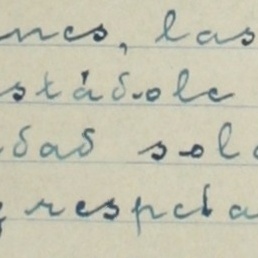 nes, las
stádole
dad sola
y respeta